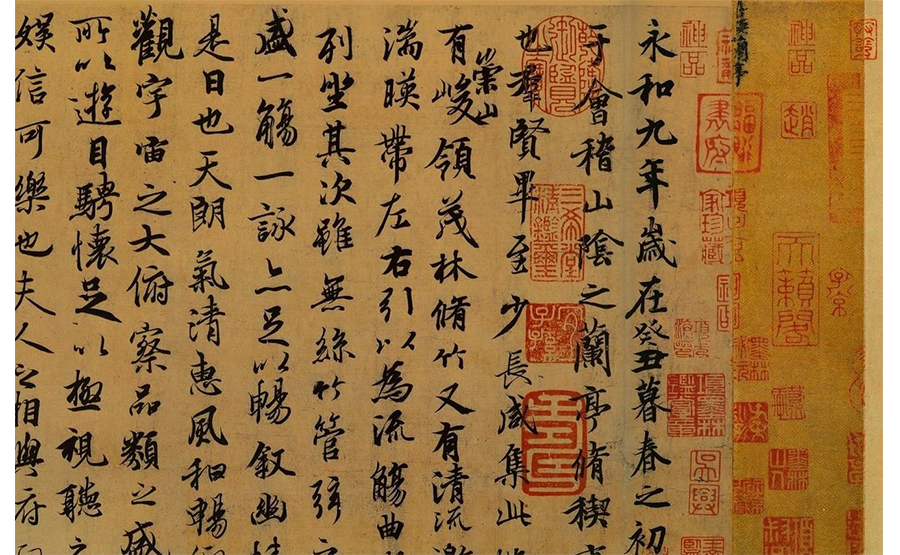 永和九年歲在癸丑暮春之初
于會稽山陰之蘭亭脩稧
也羣賢畢至少長咸集此
有崇山峻領茂林脩竹又有清流
湍暎帶左右引以為流觴曲
列坐其次雖無絲竹管弦之
盛一觴一詠亦足以暢敘幽情
是日也天朗氣清惠風和暢
觀宇宙之大俯察品類之盛
所以遊目騁懷足以極視聽之
娛信可樂也夫人之相與俯
神品
趙
天籟閣
家珍藏
吳興